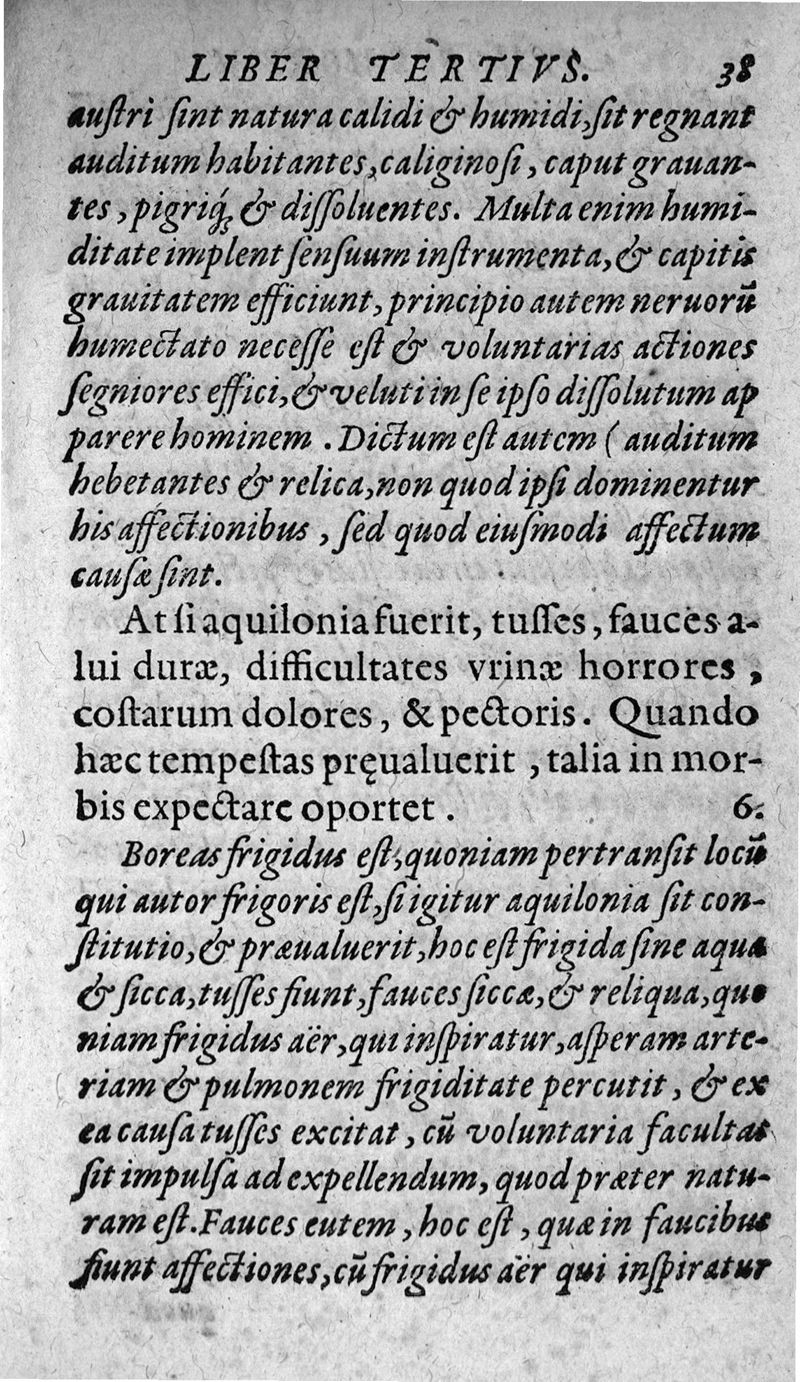 LIBER TERTIVS. 38
auſtri ſint natura calidi & humidi, ſit regnant
auditum habitantes, caliginoſi, caput grauan-
tes, pigriq́; & diſſoluentes. Multa enim humi-
ditate implent ſenſuum inſtrumenta, & capitis
grauitatem efficiunt, principio autem neruorũ
humectato neceſſe eſt & voluntarias actiones
ſegniores effici, & veluti in ſe ipſo diſſolutum ap
parere hominem . Dictum eſt autem ( auditum
hebetantes & relica, non quod ipſi dominentur
his affectionibus, ſed quod eiuſmodi affectum
cauſæ ſint.
At ſi aquilonia fuerit, tuſſes, fauces a-
lui duræ, difficultates vrinæ horrores ,
coſtarum dolores, & pectoris. Quando
hæc tempeſtas pręualuerit , talia in mor-
bis expectare oportet . 6.
Boreas frigidus eſt, quoniam pertranſit locũ
qui autor frigoris eſt, ſi igitur aquilonia ſit con-
ſtitutio, & præualuerit, hoc eſt frigida ſine aqua
& ſicca, tuſſes fiunt, fauces ſiccæ, & reliqua, quo
niam frigidus aër, qui inſpiratur, aſperam arte-
riam & pulmonem frigiditate percutit, & ex
ea cauſa tuſſes excitat, cũ voluntaria facultas
ſit impulſa ad expellendum, quod præter natu-
ram eſt. Fauces eutem, hoc eſt, quæ in faucibus
fiunt affectiones, cũ frigidus aër qui inſpiratur